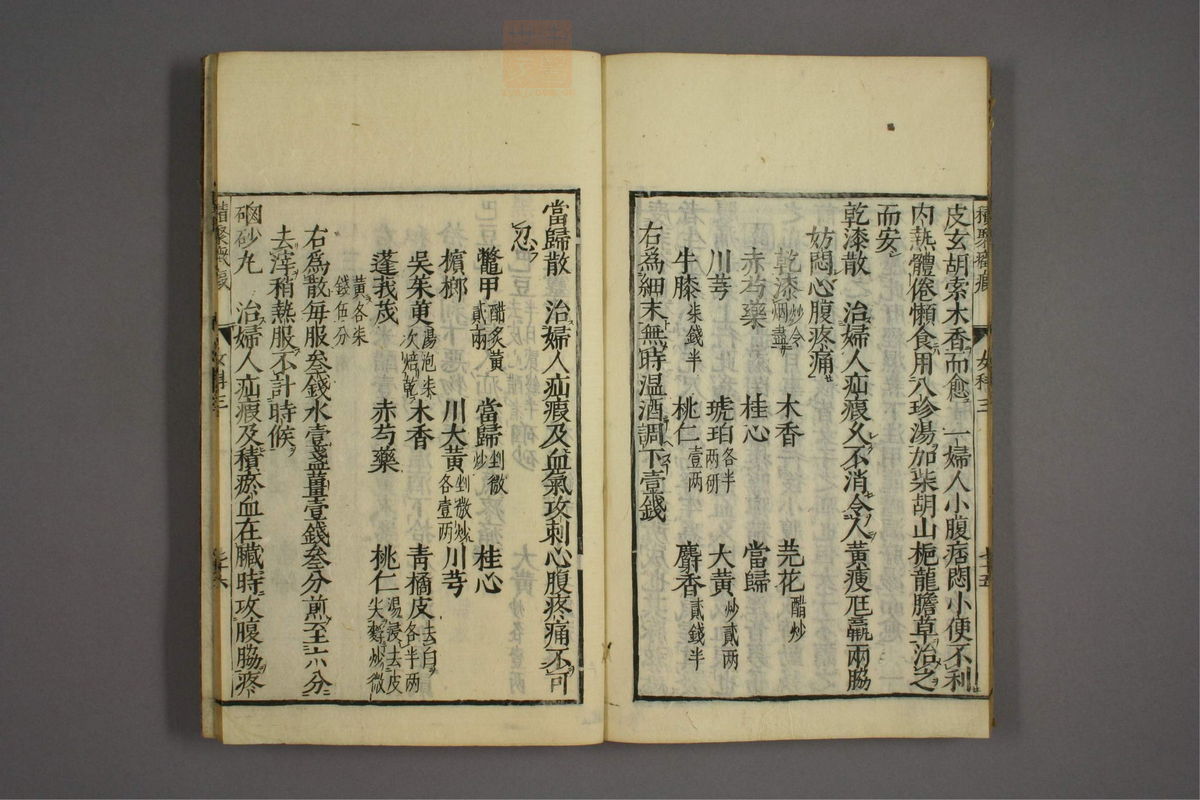 皮玄胡索木香而愈一婦人小腹痞悶小便不利
内熱體倦懶食用八珍湯加柴胡山梔龍膽草治之
而安
乾漆散 治婦人疝瘕久不消令人黃瘦尫羸兩脇
妨悶心腹疼痛
乾漆炒令烟盡 木香 芫花醋炒
赤芍藥 桂心 當歸
川芎 琥珀各半两研 大黃炒貳两
牛膝柒錢半 桃仁壹两 麝香貳錢半
右為細末無時温酒調下壹錢
女科三
七十五
當歸散 治婦人疝瘕及血氣攻刺心腹疼痛不可
忍
鼈甲醋炙黃貳兩 當歸剉微炒 桂心
檳榔 川大黃剉微炒各壹两 川芎
吳茱萸湯泡柒次焙乾 木香 青橘皮去白各半两
蓬莪茂 赤芍藥 桃仁湯浸去皮尖麩炒微
黃各柒錢伍分
右為散每服叁錢水壹盞薑壹錢叁分煎至六分
去滓稍熱服不計時候
硇砂丸 治婦人疝瘕及積瘀血在臟時攻腹脇疼